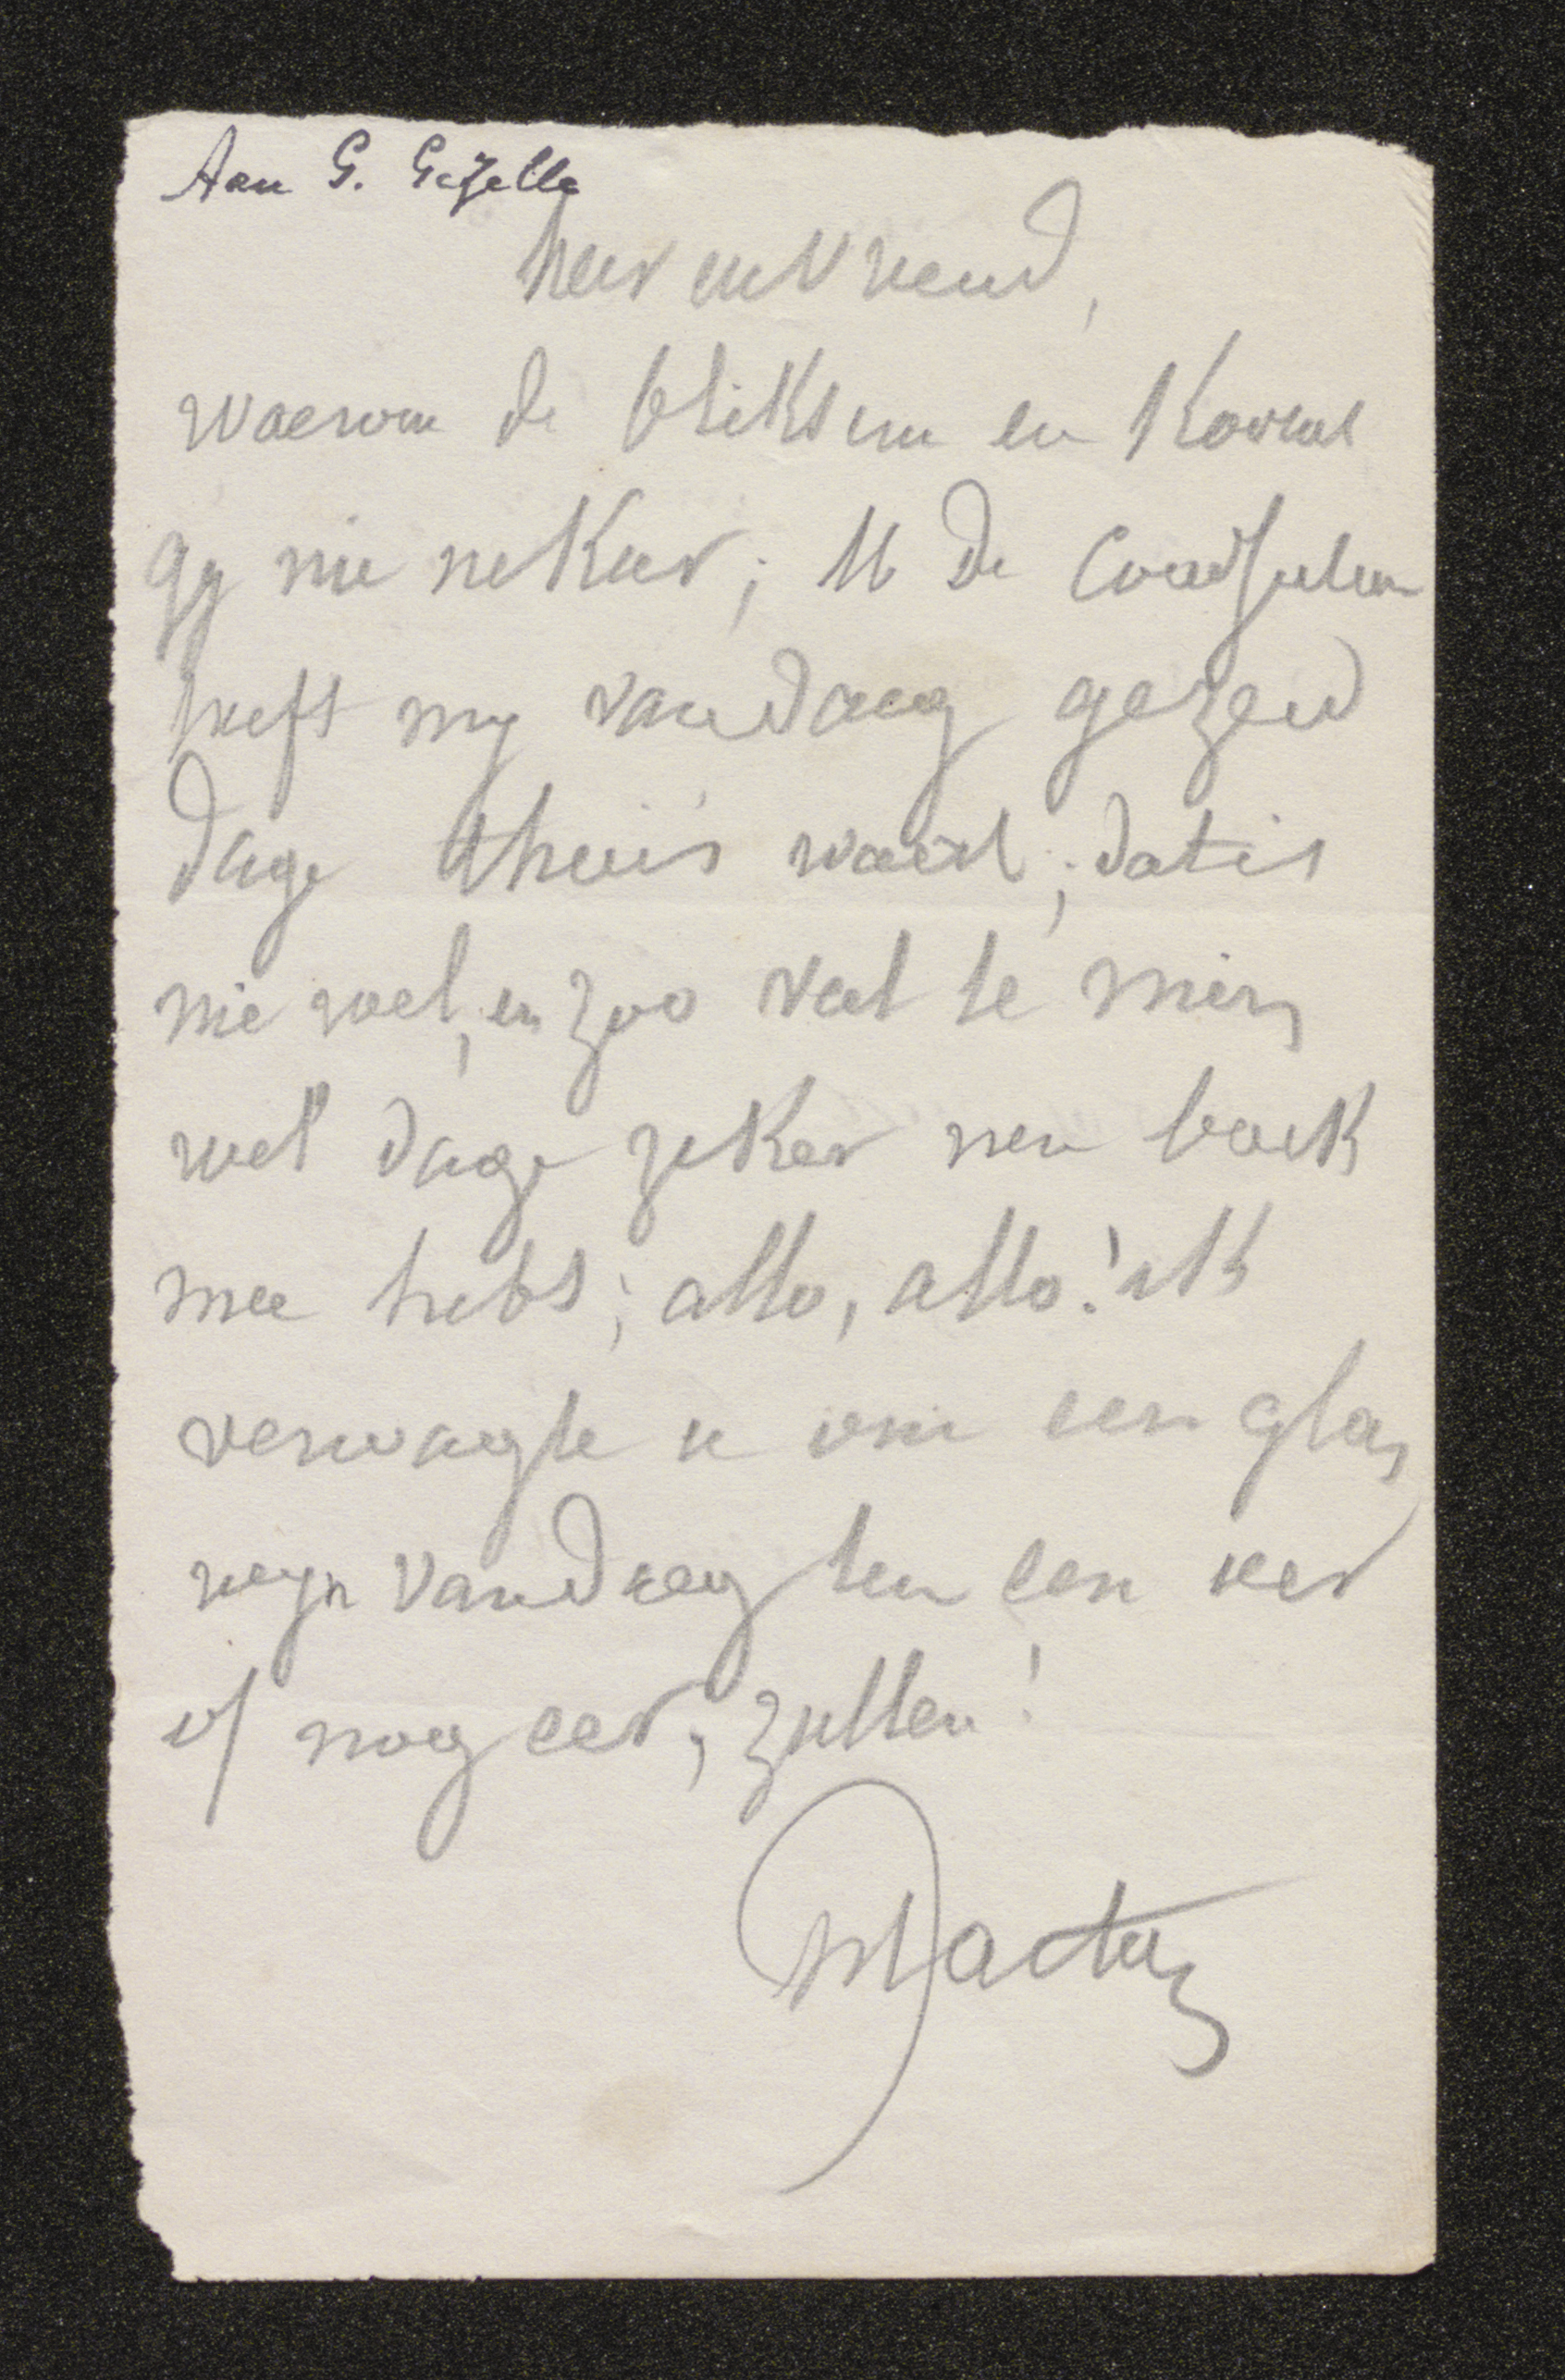 Aan G. Gezelle
heer en Vriend,
waerom de bliksem en komt
gy nie ne keer; M de
heeft my vandaeg gezeid
dage thuis waert; dat is
nie wel, en zoo vele te min
wel dage zeker nen boek
mee hebt; allo, allo! ik
verwagte u om een glas
wyn vandaeg ten een uer
of nog eer, zulleu!